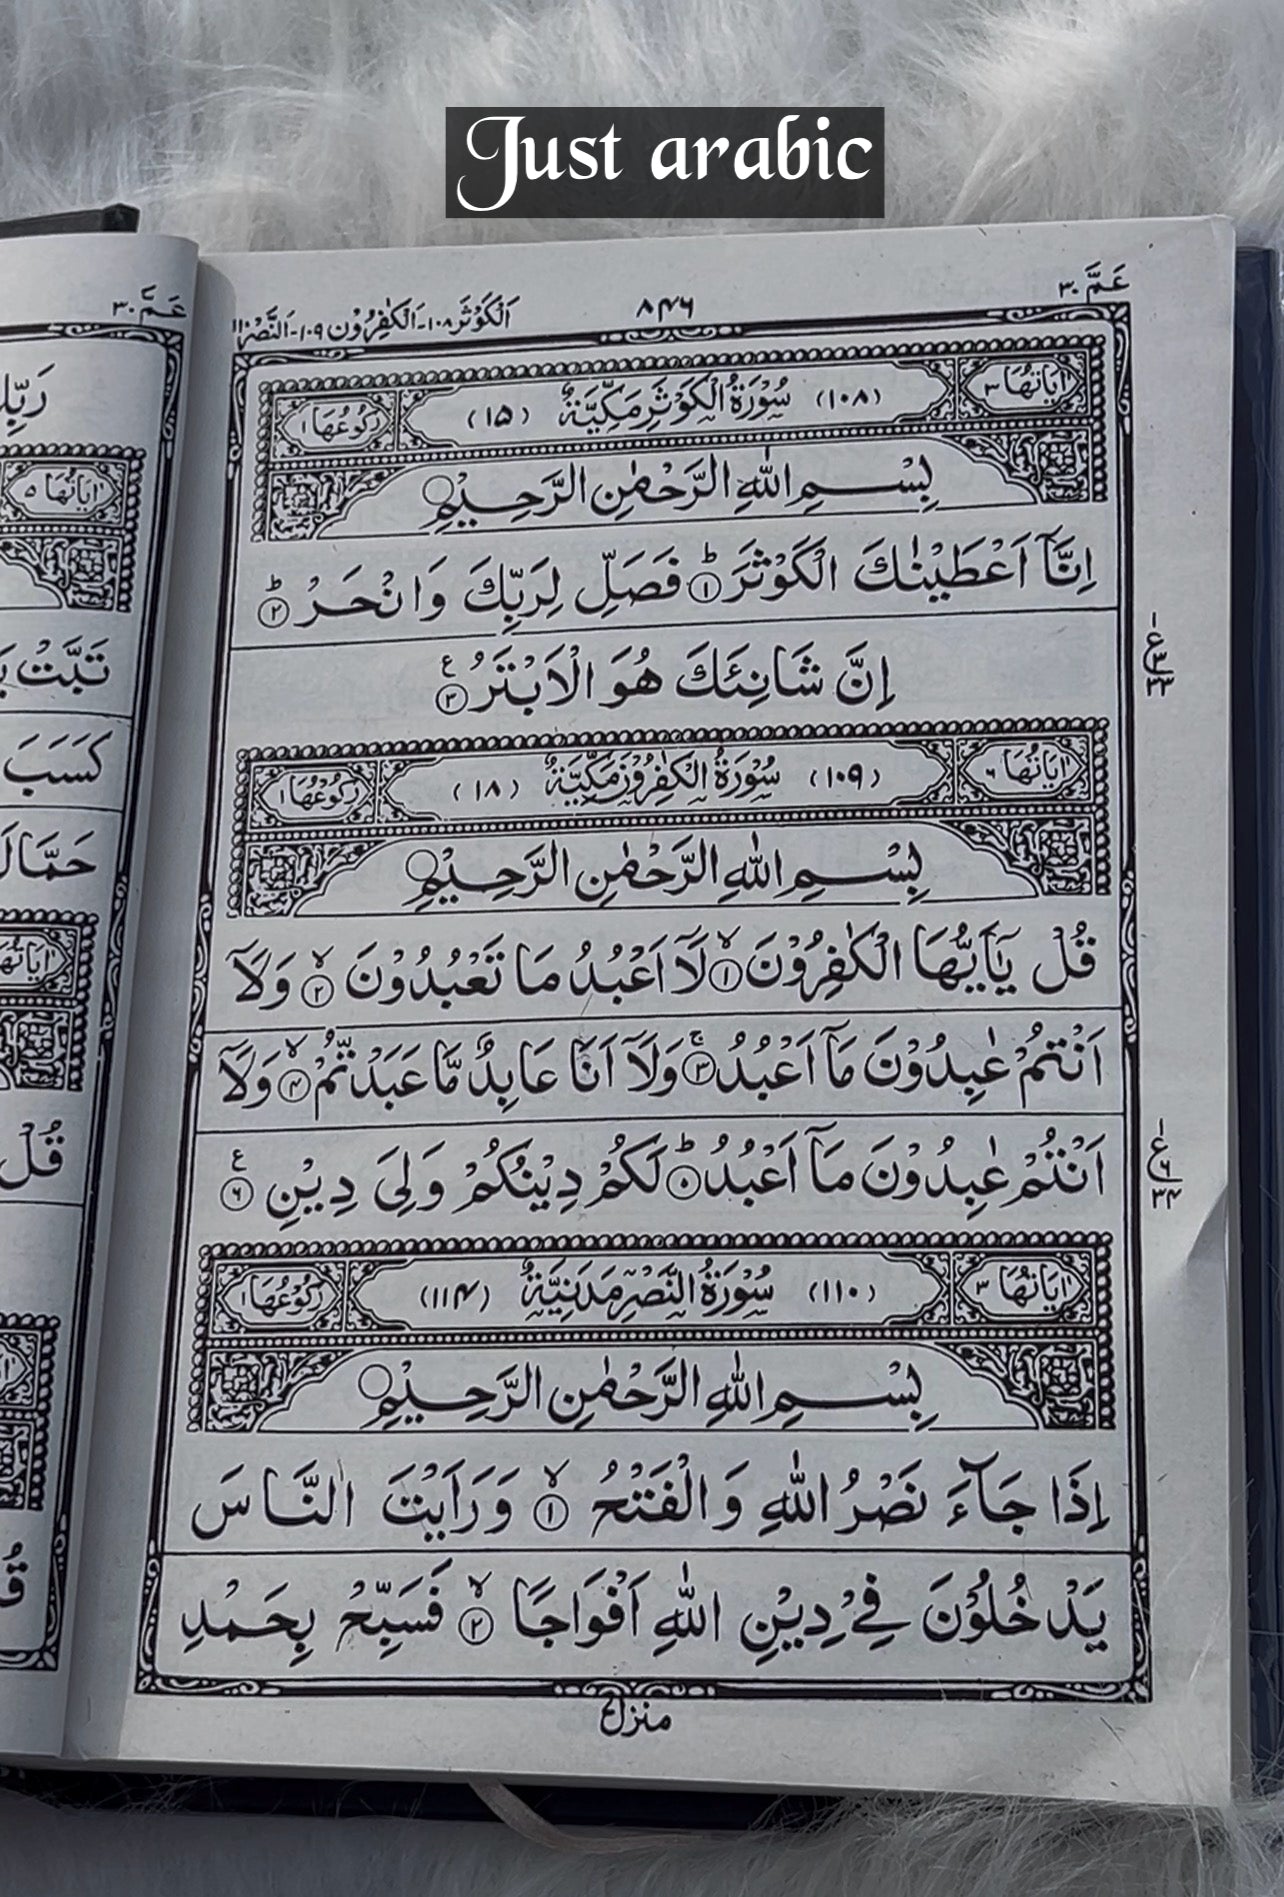 Just arabic
عَمَّ ٣٠
٨٤٦
اَلْكَوْثَر ١٠٨-اَلْكٰفِرُوْن ١٠٩-اَلنَّصْر ١١
اٰيَاتُهَا ٣
(١٠٨) سُوْرَةُ الْكَوْثَرِ مَكِّيَّةٌ (١٥)
رُكُوْعُهَا ١
بِسْمِ اللّٰهِ الرَّحْمٰنِ الرَّحِيْمِ
اِنَّاۤ اَعْطَيْنٰكَ الْكَوْثَرَ ؕ ١ فَصَلِّ لِرَبِّكَ وَانْحَرْ ؕ ٢
اِنَّ شَانِئَكَ هُوَ الْاَبْتَرُ ع ٣
اٰيَاتُهَا ٦
(١٠٩) سُوْرَةُ الْكٰفِرُوْنَ مَكِّيَّةٌ (١٨)
رُكُوْعُهَا ١
بِسْمِ اللّٰهِ الرَّحْمٰنِ الرَّحِيْمِ
قُلْ يٰۤاَيُّهَا الْكٰفِرُوْنَ ۙ ١ لَاۤ اَعْبُدُ مَا تَعْبُدُوْنَ ۙ ٢ وَلَاۤ
اَنْتُمْ عٰبِدُوْنَ مَاۤ اَعْبُدُ ۚ ٣ وَلَاۤ اَنَا عَابِدٌ مَّا عَبَدْتُّمْ ۙ ٤ وَلَاۤ
اَنْتُمْ عٰبِدُوْنَ مَاۤ اَعْبُدُ ؕ ٥ لَكُمْ دِيْنُكُمْ وَلِيَ دِيْنِ ع ٦
اٰيَاتُهَا ٣
(١١٠) سُوْرَةُ النَّصْرِ مَدَنِيَّةٌ (١١٤)
رُكُوْعُهَا ١
بِسْمِ اللّٰهِ الرَّحْمٰنِ الرَّحِيْمِ
اِذَا جَآءَ نَصْرُ اللّٰهِ وَالْفَتْحُ ۙ ١ وَرَاَيْتَ النَّاسَ
يَدْخُلُوْنَ فِيْ دِيْنِ اللّٰهِ اَفْوَاجًا ۙ ٢ فَسَبِّحْ بِحَمْدِ
منزل
عَمَّ ٣٠
اٰيَاتُهَا ٥
تَبَّتْ
كَسَبَ
قُلْ